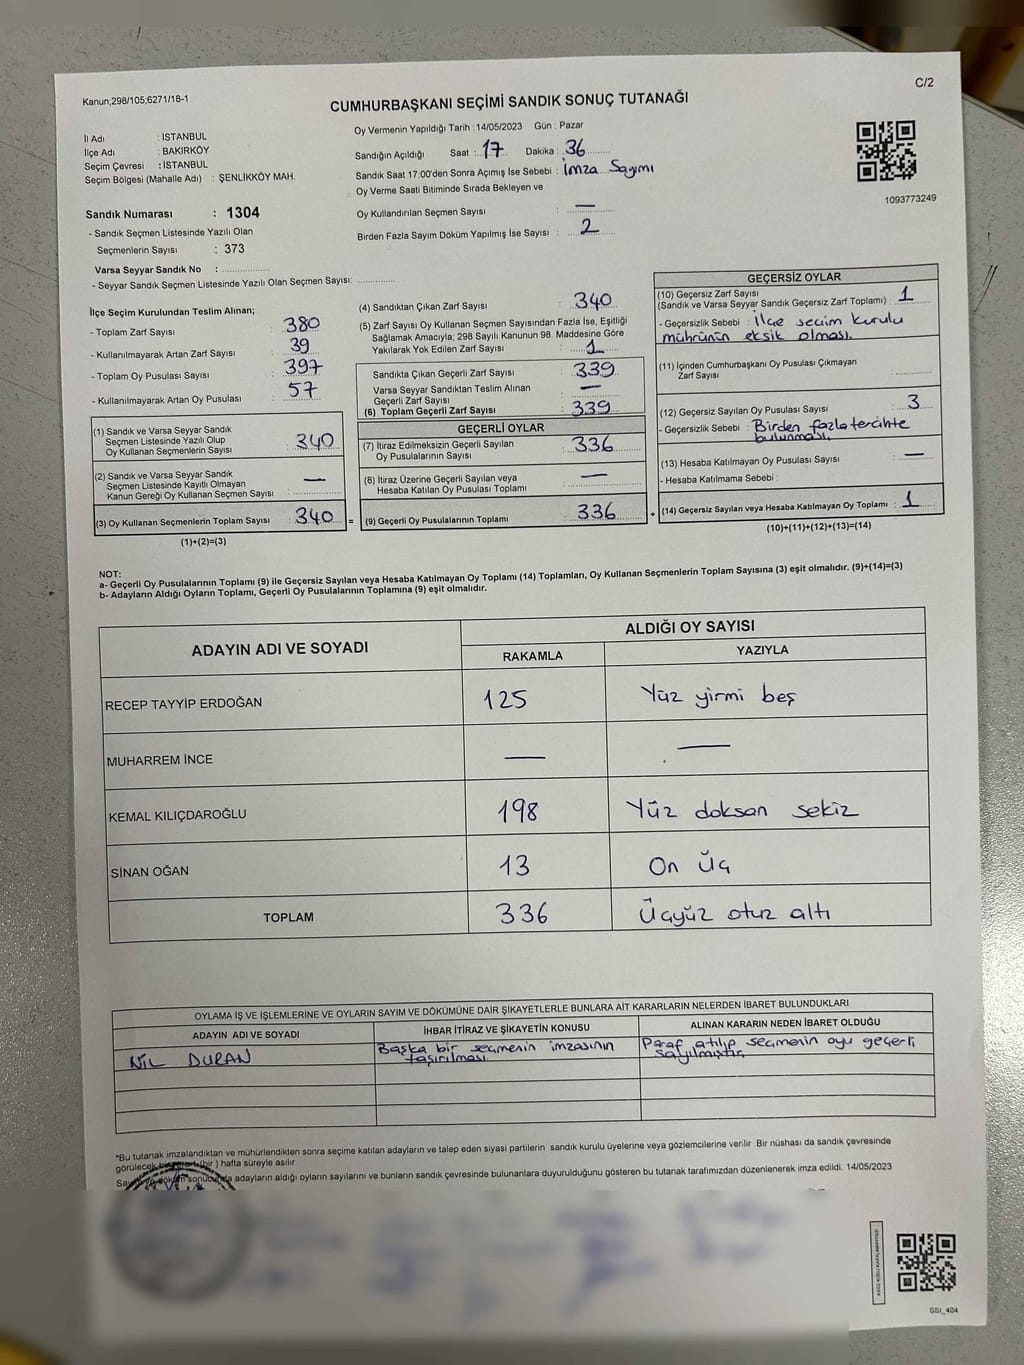 Kanun;298/105;6271/18-1
C/2
CUMHURBAŞKANI SEÇİMİ SANDIK SONUÇ TUTANAĞI
İl Adı : İSTANBUL
İlçe Adı : BAKIRKÖY
Seçim Çevresi : İSTANBUL
Seçim Bölgesi (Mahalle Adı) : ŞENLİKKÖY MAH.
Sandık Numarası : 1304
- Sandık Seçmen Listesinde Yazılı Olan
Seçmenlerin Sayısı : 373
Varsa Seyyar Sandık No : ..................
- Seyyar Sandık Seçmen Listesinde Yazılı Olan Seçmen Sayısı: ............
Oy Vermenin Yapıldığı Tarih : 14/05/2023 Gün : Pazar
Sandığın Açıldığı Saat : 17 Dakika : 36
Sandık Saat 17:00'den Sonra Açımış İse Sebebi : İmza Sayımı
Oy Verme Saati Bitiminde Sırada Bekleyen ve
Oy Kullandırılan Seçmen Sayısı : —
Birden Fazla Sayım Döküm Yapılmış İse Sayısı : 2
1093773249
İlçe Seçim Kurulundan Teslim Alınan;
- Toplam Zarf Sayısı : 380
- Kullanılmayarak Artan Zarf Sayısı : 39
- Toplam Oy Pusulası Sayısı : 397
- Kullanılmayarak Artan Oy Pusulası : 57
(1) Sandık ve Varsa Seyyar Sandık
Seçmen Listesinde Yazılı Olup
Oy Kullanan Seçmenlerin Sayısı : 340
(2) Sandık ve Varsa Seyyar Sandık
Seçmen Listesinde Kayıtlı Olmayan
Kanun Gereği Oy Kullanan Seçmen Sayısı : —
(3) Oy Kullanan Seçmenlerin Toplam Sayısı : 340 =
(1)+(2)=(3)
(4) Sandıktan Çıkan Zarf Sayısı : 340
(5) Zarf Sayısı Oy Kullanan Seçmen Sayısından Fazla İse, Eşitliği
Sağlamak Amacıyla; 298 Sayılı Kanunun 98. Maddesine Göre
Yakılarak Yok Edilen Zarf Sayısı : 1
Sandıkta Çıkan Geçerli Zarf Sayısı : 339
Varsa Seyyar Sandıktan Teslim Alınan
Geçerli Zarf Sayısı : —
(6) Toplam Geçerli Zarf Sayısı : 339
GEÇERLİ OYLAR
(7) İtiraz Edilmeksizin Geçerli Sayılan
Oy Pusulalarının Sayısı : 336
(8) İtiraz Üzerine Geçerli Sayılan veya
Hesaba Katılan Oy Pusulası Toplamı : —
(9) Geçerli Oy Pusulalarının Toplamı : 336 +
GEÇERSİZ OYLAR
(10) Geçersiz Zarf Sayısı
(Sandık ve Varsa Seyyar Sandık Geçersiz Zarf Toplamı) : 1
- Geçersizlik Sebebi : İlçe seçim kurulu
mührünün eksik olması.
(11) İçinden Cumhurbaşkanı Oy Pusulası Çıkmayan
Zarf Sayısı : ............
(12) Geçersiz Sayılan Oy Pusulası Sayısı : 3
- Geçersizlik Sebebi : Birden fazla tercihte
bulunması.
(13) Hesaba Katılmayan Oy Pusulası Sayısı : —
- Hesaba Katılmama Sebebi :
(14) Geçersiz Sayılan veya Hesaba Katılmayan Oy Toplamı : 1
(10)+(11)+(12)+(13)=(14)
NOT:
a- Geçerli Oy Pusulalarının Toplamı (9) ile Geçersiz Sayılan veya Hesaba Katılmayan Oy Toplamı (14) Toplamları, Oy Kullanan Seçmenlerin Toplam Sayısına (3) eşit olmalıdır. (9)+(14)=(3)
b- Adayların Aldığı Oyların Toplamı, Geçerli Oy Pusulalarının Toplamına (9) eşit olmalıdır.
ADAYIN ADI VE SOYADI
ALDIĞI OY SAYISI
RAKAMLA YAZIYLA
RECEP TAYYİP ERDOĞAN 125 Yüz yirmi beş
MUHARREM İNCE — —
KEMAL KILIÇDAROĞLU 198 Yüz doksan sekiz
SİNAN OĞAN 13 On üç
TOPLAM 336 Üçyüz otuz altı
OYLAMA İŞ VE İŞLEMLERİNE VE OYLARIN SAYIM VE DÖKÜMÜNE DAİR ŞİKAYETLERLE BUNLARA AİT KARARLARIN NELERDEN İBARET BULUNDUKLARI
ADAYIN ADI VE SOYADI İHBAR İTİRAZ VE ŞİKAYETİN KONUSU ALINAN KARARIN NEDEN İBARET OLDUĞU
NİL DURAN
Başka bir seçmenin imzasının
taşırılması.
Paraf atılıp seçmenin oyu geçerli
sayılmıştır.
*Bu tutanak imzalandıktan ve mühürlendikten sonra seçime katılan adayların ve talep eden siyasi partilerin sandık kurulu üyelerine veya gözlemcilerine verilir .Bir nüshası da sandık çevresinde
görülecek bir (bir ) hafta süreyle asılır
Sayım ve döküm sonucunda adayların aldığı oyların sayılarını ve bunların sandık çevresinde bulunanlara duyurulduğunu gösteren bu tutanak tarafımızdan düzenlenerek imza edildi. 14/05/2023
SSİ_404